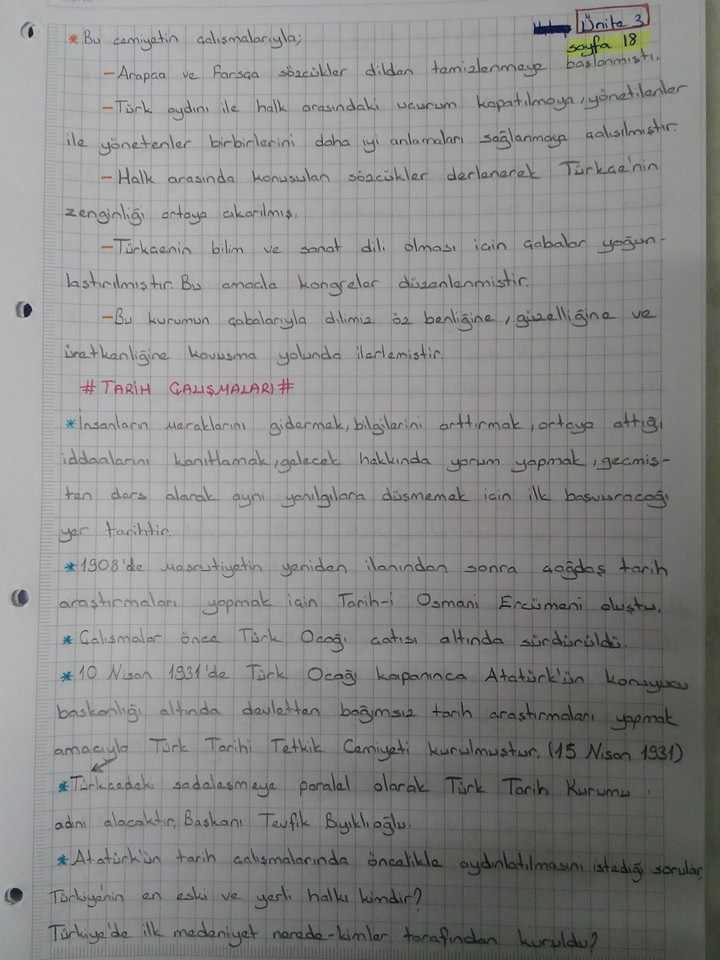 Ünite 3
sayfa 18
* Bu cemiyetin çalışmalarıyla;
– Arapça ve Farsça sözcükler dilden temizlenmeye başlanmıştı.
– Türk aydını ile halk arasındaki uçurum kapatılmaya, yönetilenler
ile yönetenler birbirlerini daha iyi anlamaları sağlanmaya çalışılmıştır.
– Halk arasında konuşulan sözcükler derlenerek Türkçe'nin
zenginliği ortaya çıkarılmış.
– Türkçenin bilim ve sanat dili olması için çabalar yoğun-
laştırılmıştır. Bu amaçla kongreler düzenlenmiştir.
– Bu kurumun çabalarıyla dilimiz öz benliğine, güzelliğine ve
üretkenliğine kavuşma yolunda ilerlemiştir.
# TARİH ÇALIŞMALARI #
* İnsanların meraklarını gidermek, bilgilerini arttırmak, ortaya attığı
iddaalarını kanıtlamak, gelecek hakkında yorum yapmak, geçmiş-
ten ders alarak aynı yanılgılara düşmemek için ilk başvuracağı
yer tarihtir.
* 1908'de meşrutiyetin yeniden ilanından sonra çağdaş tarih
araştırmaları yapmak için Tarih-i Osmani Encümeni oluştu.
* Çalışmalar önce Türk Ocağı çatısı altında sürdürüldü.
* 10 Nisan 1931'de Türk Ocağı kapanınca Atatürk'ün koruyucu
başkanlığı altında devletten bağımsız tarih araştırmaları yapmak
amacıyla Türk Tarihi Tetkik Cemiyeti kurulmuştur. (15 Nisan 1931)
* Türkçedeki sadeleşmeye paralel olarak Türk Tarih Kurumu
adını alacaktır. Başkanı Tevfik Bıyıklıoğlu.
* Atatürk'ün tarih çalışmalarında öncelikle aydınlatılmasını istediği sorular;
Türkiye'nin en eski ve yerli halkı kimdir?
Türkiye'de ilk medeniyet nerede-kimler tarafından kuruldu?